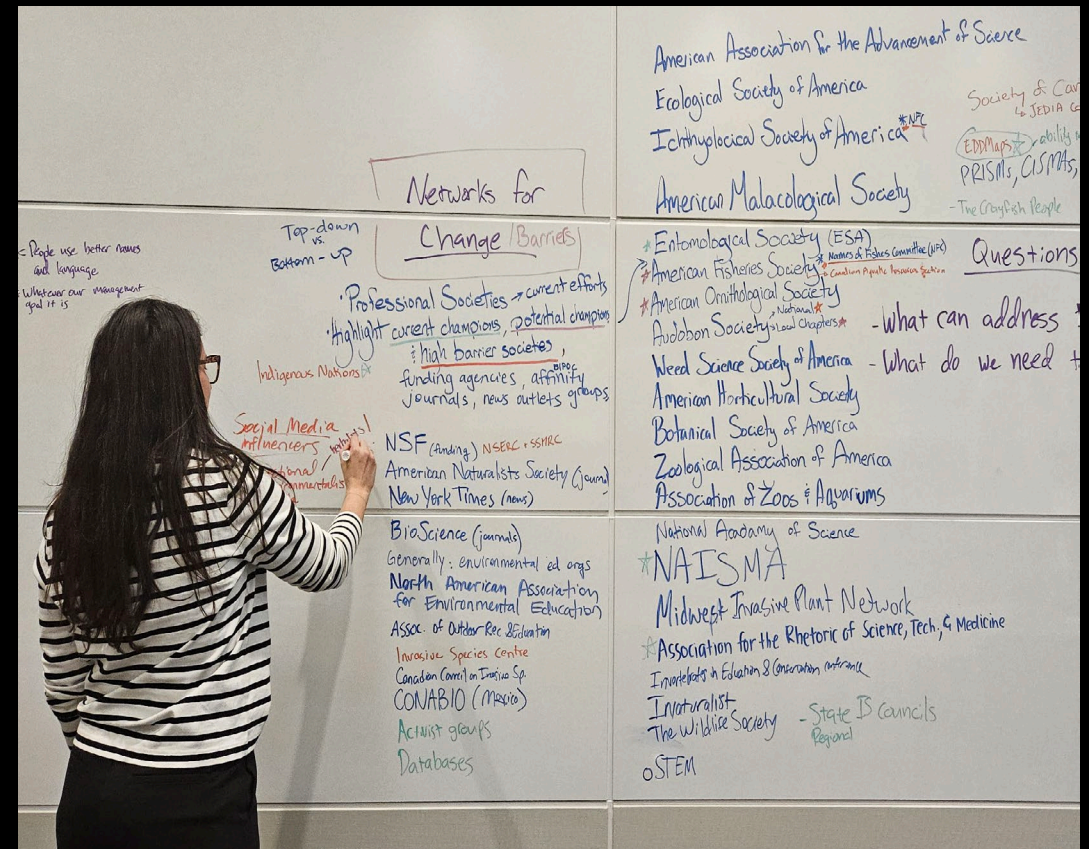 People use better names
and language
Whatever our management
goal it is
Top-down
vs.
Bottom-up
Networks for
Change/Barriers
· Professional Societies → current efforts
· Highlight current champions, potential champions
& high barrier societes,
funding agencies, affinity
BIPOC
journals, news outlets groups
Indigenous Nations
Social Media
influencers
NSF (funding) NSERC + SSHRC
American Naturalists Society (journal)
New York Times (news)
BioScience (journals)
Generally: environmental ed orgs
North American Association
for Environmental Education
Assoc. of Outdoor Rec & Education
Invasive Species Centre
Canadian Council on Invasive Sp.
CONABIO (Mexico)
Activist groups
Databases
American Association for the Advancement of Science
Ecological Society of America
Ichthyological Society of America * NFC
American Malacological Society
* Entomological Society (ESA)
* American Fisheries Society
* Names of Fishes Committee (NFC)
* Canadian Aquatic Resources Section
* American Ornithological Society
Audobon Society
> National *
> Local Chapters *
Weed Science Society of America
American Horticultural Society
Botanical Society of America
Zoological Association of America
Association of Zoos & Aquariums
National Academy of Science
* NAISMA
Midwest Invasive Plant Network
* Association for the Rhetoric of Science, Tech, & Medicine
Invertebrates in Education & Conservation conference
Inaturalist
The Wildlife Society
- State IS Councils
Regional
oSTEM
Society of
↳ JEDIA
EDDMaps * ability
PRISMs, CISMAs,
- The Crayfish People
Questions
- What can address
- What do we need